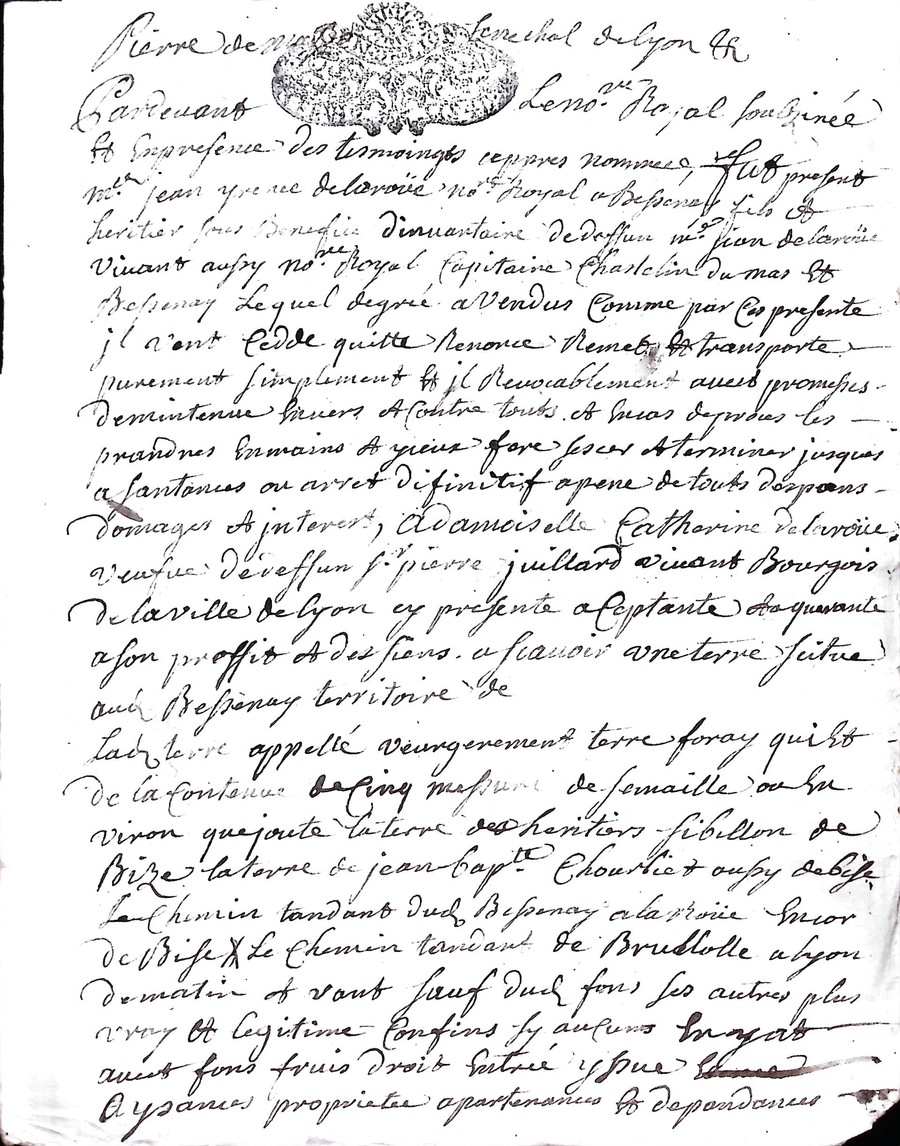 Pierre de Senechal de Lyon &
Pardevant Le no.re Royal soubsiné
Et En presence des tesmoingts cy apres nommee, fut present
m.e jean yrenee delaroüe no.re Royal a Bessenay fils et
heritier sous Benefice d'inuantaire de deffun m.e jian delaroüe
vivant aussy no.re Royal Capitaine Chastelin du mas Et
Bessenay Lequel degrée a Vendus Comme par Ces presente
jl vent Cedde quitte Renonce Remet Et transporte
purement simplement Et jl Revocablement avect promesses
de mintenue Enuers et Contre touts et En cas de proses les
prandres En mains et yceux fere et terminer jusques
a santances ou arret difinitif a pene de touts despans
domages et jnterest, a damoiselle Catherine delaroüe
veufue de deffun s.r pierre juillard vivant Bourgois
de la ville de Lyon cy presente aCeptante et aquerante
a son proffit et des siens a scavoir vne terre scitue
aud Bessenay territoire de
Lad terre appellé veurgerement terre foray qui Et
de la Contenue de Cinq messures de semaille ou En
viron que joute la terre des heritiers sibellon de
Bize la terre de jean bap.te Chourliet aussy de bise
Le Chemin tandant dud Bessenay a la Roüe Encor
de Bise Le Chemin tandant de Brullolle a Lyon
de matin et vant sauf dud fons ses autres plus
vray Et legitime Confins sy aucuns En y at
avect fons fruis droit Entrée yssue
Aysances proprietee apartenances Et dependances